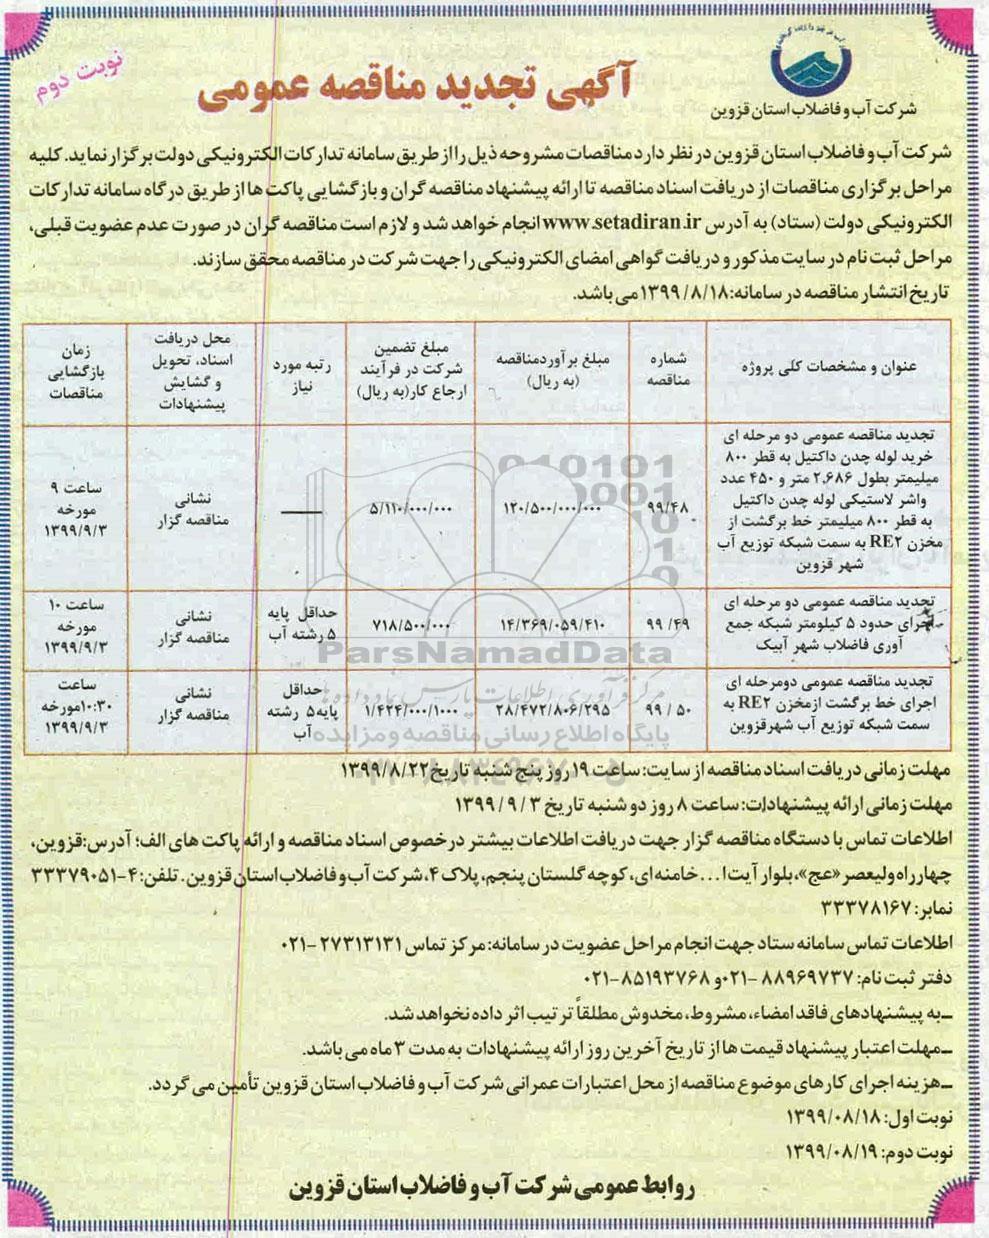 نوبت دوم
شرکت آب و فاضلاب استان قزوین
آگهی تجدید مناقصه عمومی
شرکت آب و فاضلاب استان قزوین در نظر دارد مناقصات مشروحه ذیل را از طریق سامانه تدارکات الکترونیکی دولت برگزار نماید. کلیه
مراحل برگزاری مناقصات از دریافت اسناد مناقصه تا ارائه پیشنهاد مناقصه گران و بازگشایی پاکت ها از طریق درگاه سامانه تدارکات
الکترونیکی دولت (ستاد) به آدرس www.setadiran.ir انجام خواهد شد و لازم است مناقصه گران در صورت عدم عضویت قبلی،
مراحل ثبت نام در سایت مذکور و دریافت گواهی امضای الکترونیکی را جهت شرکت در مناقصه محقق سازند.
تاریخ انتشار مناقصه در سامانه: ۱۳۹۹/۸/۱۸ می باشد.
عنوان و مشخصات کلی پروژه
شماره
مناقصه
مبلغ برآورد مناقصه
(به ریال)
مبلغ تضمین
شرکت در فرآیند
ارجاع کار(به ریال)
رتبه مورد
نیاز
محل دریافت
اسناد، تحویل
و گشایش
پیشنهادات
زمان
بازگشایی
مناقصات
تجدید مناقصه عمومی دو مرحله ای
خرید لوله چدن داکتیل به قطر ۸۰۰
میلیمتر بطول ۲،۶۸۶ متر و ۴۵۰ عدد
واشر لاستیکی لوله چدن داکتیل
به قطر ۸۰۰ میلیمتر خط برگشت از
مخزن RE۲ به سمت شبکه توزیع آب
شهر قزوین
۹۹/۴۸
۱۲۰/۵۰۰/۰۰۰/۰۰۰
۵/۱۱۰/۰۰۰/۰۰۰
ــــــــ
نشانی
مناقصه گزار
ساعت ۹
مورخه
۱۳۹۹/۹/۳
تجدید مناقصه عمومی دو مرحله ای
اجرای حدود ۵ کیلومتر شبکه جمع
آوری فاضلاب شهر آبیک
۹۹ /۴۹
۱۴/۳۶۹/۰۵۹/۴۱۰
۷۱۸/۵۰۰/۰۰۰
حداقل پایه
۵ رشته آب
نشانی
مناقصه گزار
ساعت ۱۰
مورخه
۱۳۹۹/۹/۳
تجدید مناقصه عمومی دومرحله ای
اجرای خط برگشت ازمخزن RE۲ به
سمت شبکه توزیع آب شهرقزوین
۹۹ / ۵۰
۲۸/۴۷۲/۸۰۶/۲۹۵
۱/۴۲۴/۰۰۰/۱۰۰۰
حداقل
پایه۵ رشته
آب
نشانی
مناقصه گزار
ساعت
۱۰:۳۰مورخه
۱۳۹۹/۹/۳
ParsNamadData
مرکز فرآوری اطلاعات پارس نماد داده ها
پایگاه اطلاع رسانی مناقصه و مزایده
مهلت زمانی دریافت اسناد مناقصه از سایت: ساعت ۱۹ روز پنج شنبه تاریخ ۱۳۹۹/۸/۲۲
مهلت زمانی ارائه پیشنهادات: ساعت ۸ روز دو شنبه تاریخ ۳ / ۹ / ۱۳۹۹
اطلاعات تماس با دستگاه مناقصه گزار جهت دریافت اطلاعات بیشتر در خصوص اسناد مناقصه و ارائه پاکت های الف؛ آدرس: قزوین،
چهارراه ولیعصر «عج»، بلوار آیت ا... خامنه ای، کوچه گلستان پنجم، پلاک ۴، شرکت آب و فاضلاب استان قزوین. تلفن: ۴-۳۳۳۷۹۰۵۱
نمابر: ۳۳۳۷۸۱۶۷
اطلاعات تماس سامانه ستاد جهت انجام مراحل عضویت در سامانه: مرکز تماس ۲۷۳۱۳۱۳۱-۰۲۱
دفتر ثبت نام: ۸۸۹۶۹۷۳۷-۰۲۱ و ۸۵۱۹۳۷۶۸-۰۲۱
ـ به پیشنهادهای فاقد امضاء، مشروط، مخدوش مطلقاً ترتیب اثر داده نخواهد شد.
ـ مهلت اعتبار پیشنهاد قیمت ها از تاریخ آخرین روز ارائه پیشنهادات به مدت ۳ ماه می باشد.
ـ هزینه اجرای کارهای موضوع مناقصه از محل اعتبارات عمرانی شرکت آب و فاضلاب استان قزوین تأمین می گردد.
نوبت اول: ۱۳۹۹/۰۸/۱۸
نوبت دوم: ۱۳۹۹/۰۸/۱۹
روابط عمومی شرکت آب و فاضلاب استان قزوین